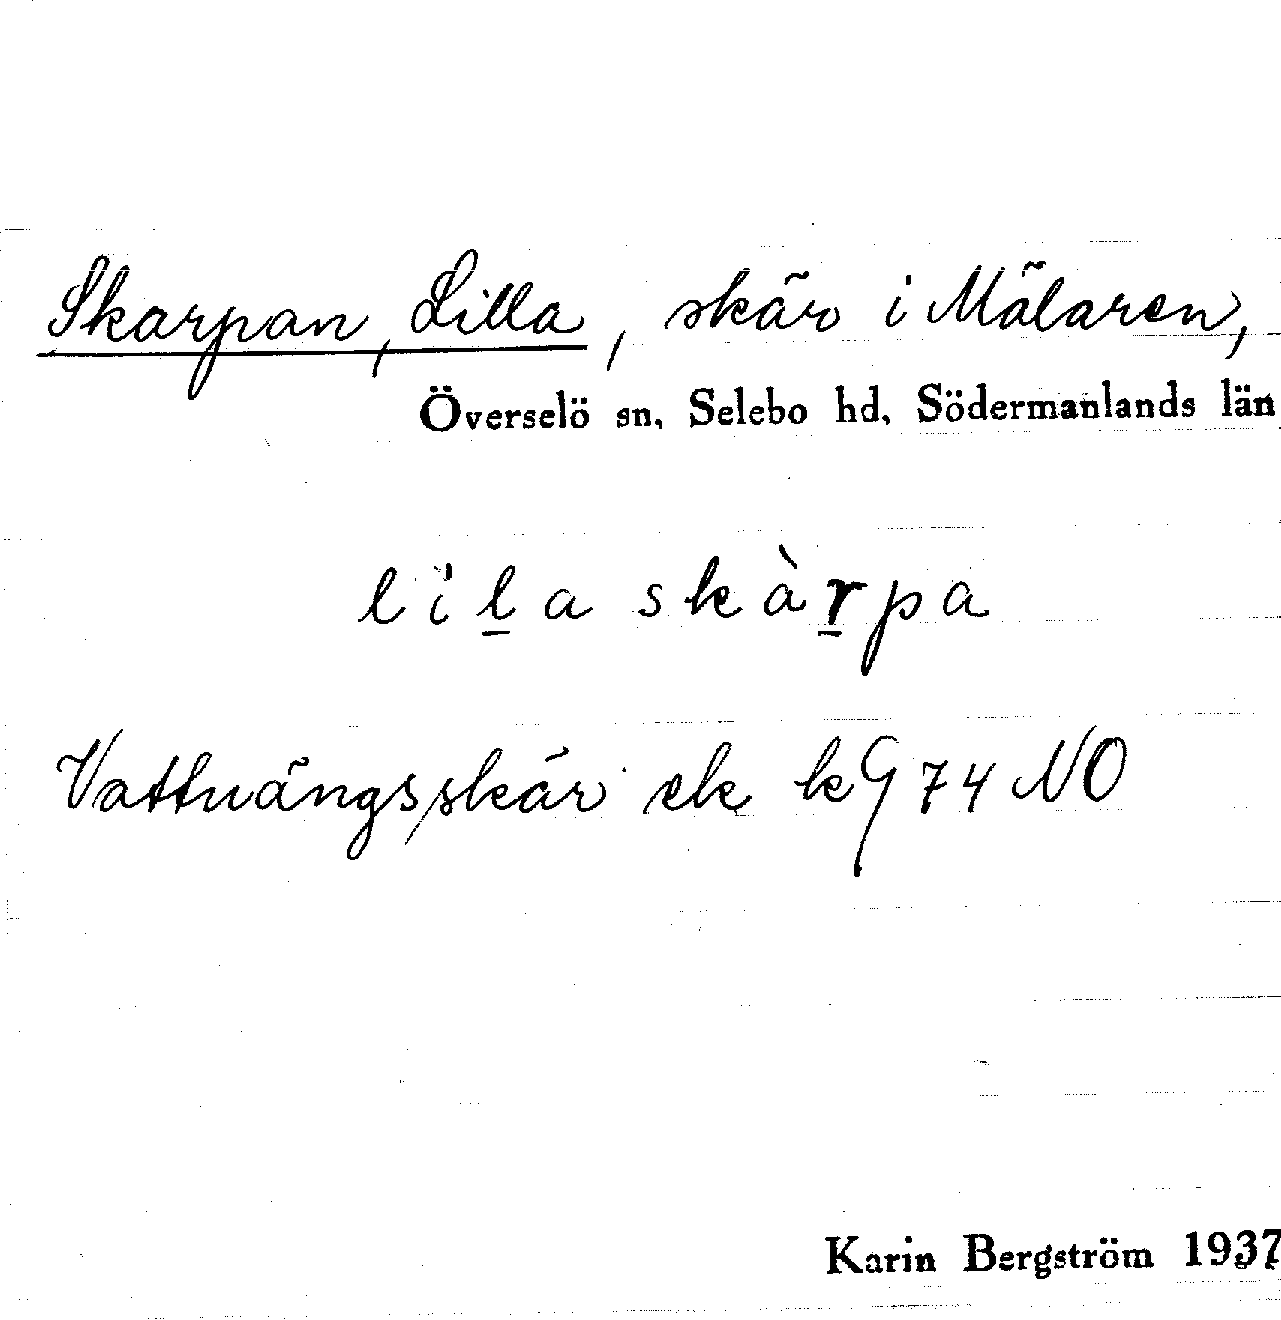 Skarpan, Lilla, skär i Mälaren,
Överselö sn, Selebo hd, Södermanlands län
lìl̲a skàr̲pa
Vattuängsskär ek kG 74 NO
Karin Bergström 1937